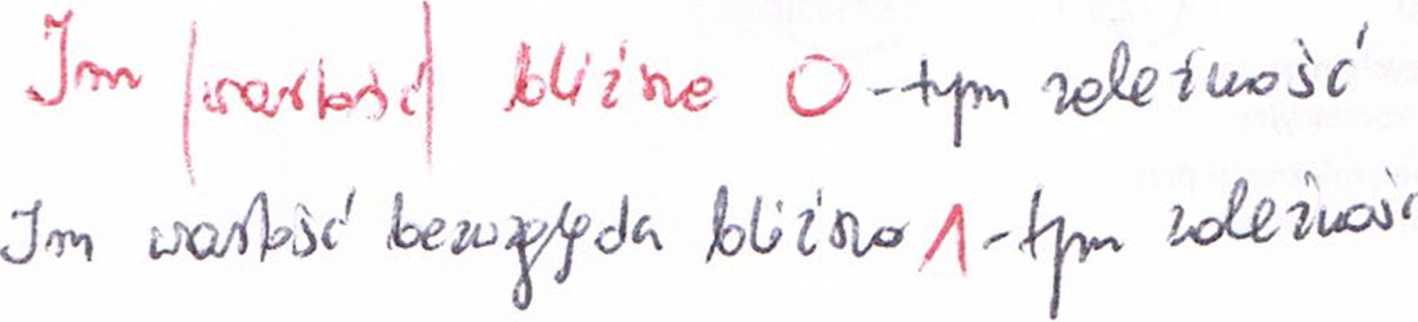 Im |wartość| bliższe 0 - tym zależność
Im wartość bezwzględa bliższa 1 - tym zależność